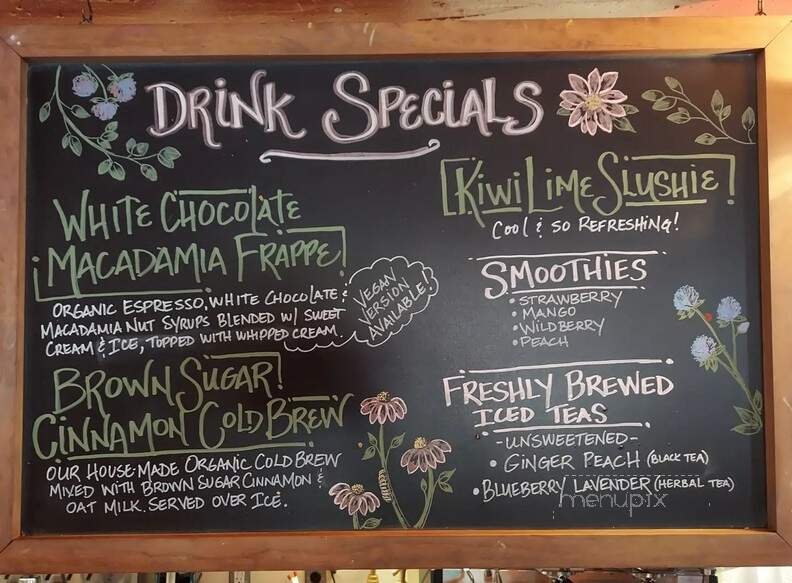 DRINK SPECIALS
WHITE CHOCOLATE
MACADAMIA FRAPPE
ORGANIC ESPRESSO, WHITE CHOCOLATE &
MACADAMIA NUT SYRUPS BLENDED W/ SWEET
CREAM & ICE, TOPPED WITH WHIPPED CREAM.
VEGAN
VERSION
AVAILABLE!
BROWN SUGAR
CINNAMON COLD BREW
OUR HOUSE-MADE ORGANIC COLD BREW
MIXED WITH BROWN SUGAR CINNAMON &
OAT MILK. SERVED OVER ICE.
KIWI LIME SLUSHIE!
COOL & SO REFRESHING!
SMOOTHIES
• STRAWBERRY
• MANGO
• WILDBERRY
• PEACH
FRESHLY BREWED
ICED TEAS
-UNSWEETENED-
• GINGER PEACH (BLACK TEA)
• BLUEBERRY LAVENDER (HERBAL TEA)
menupix